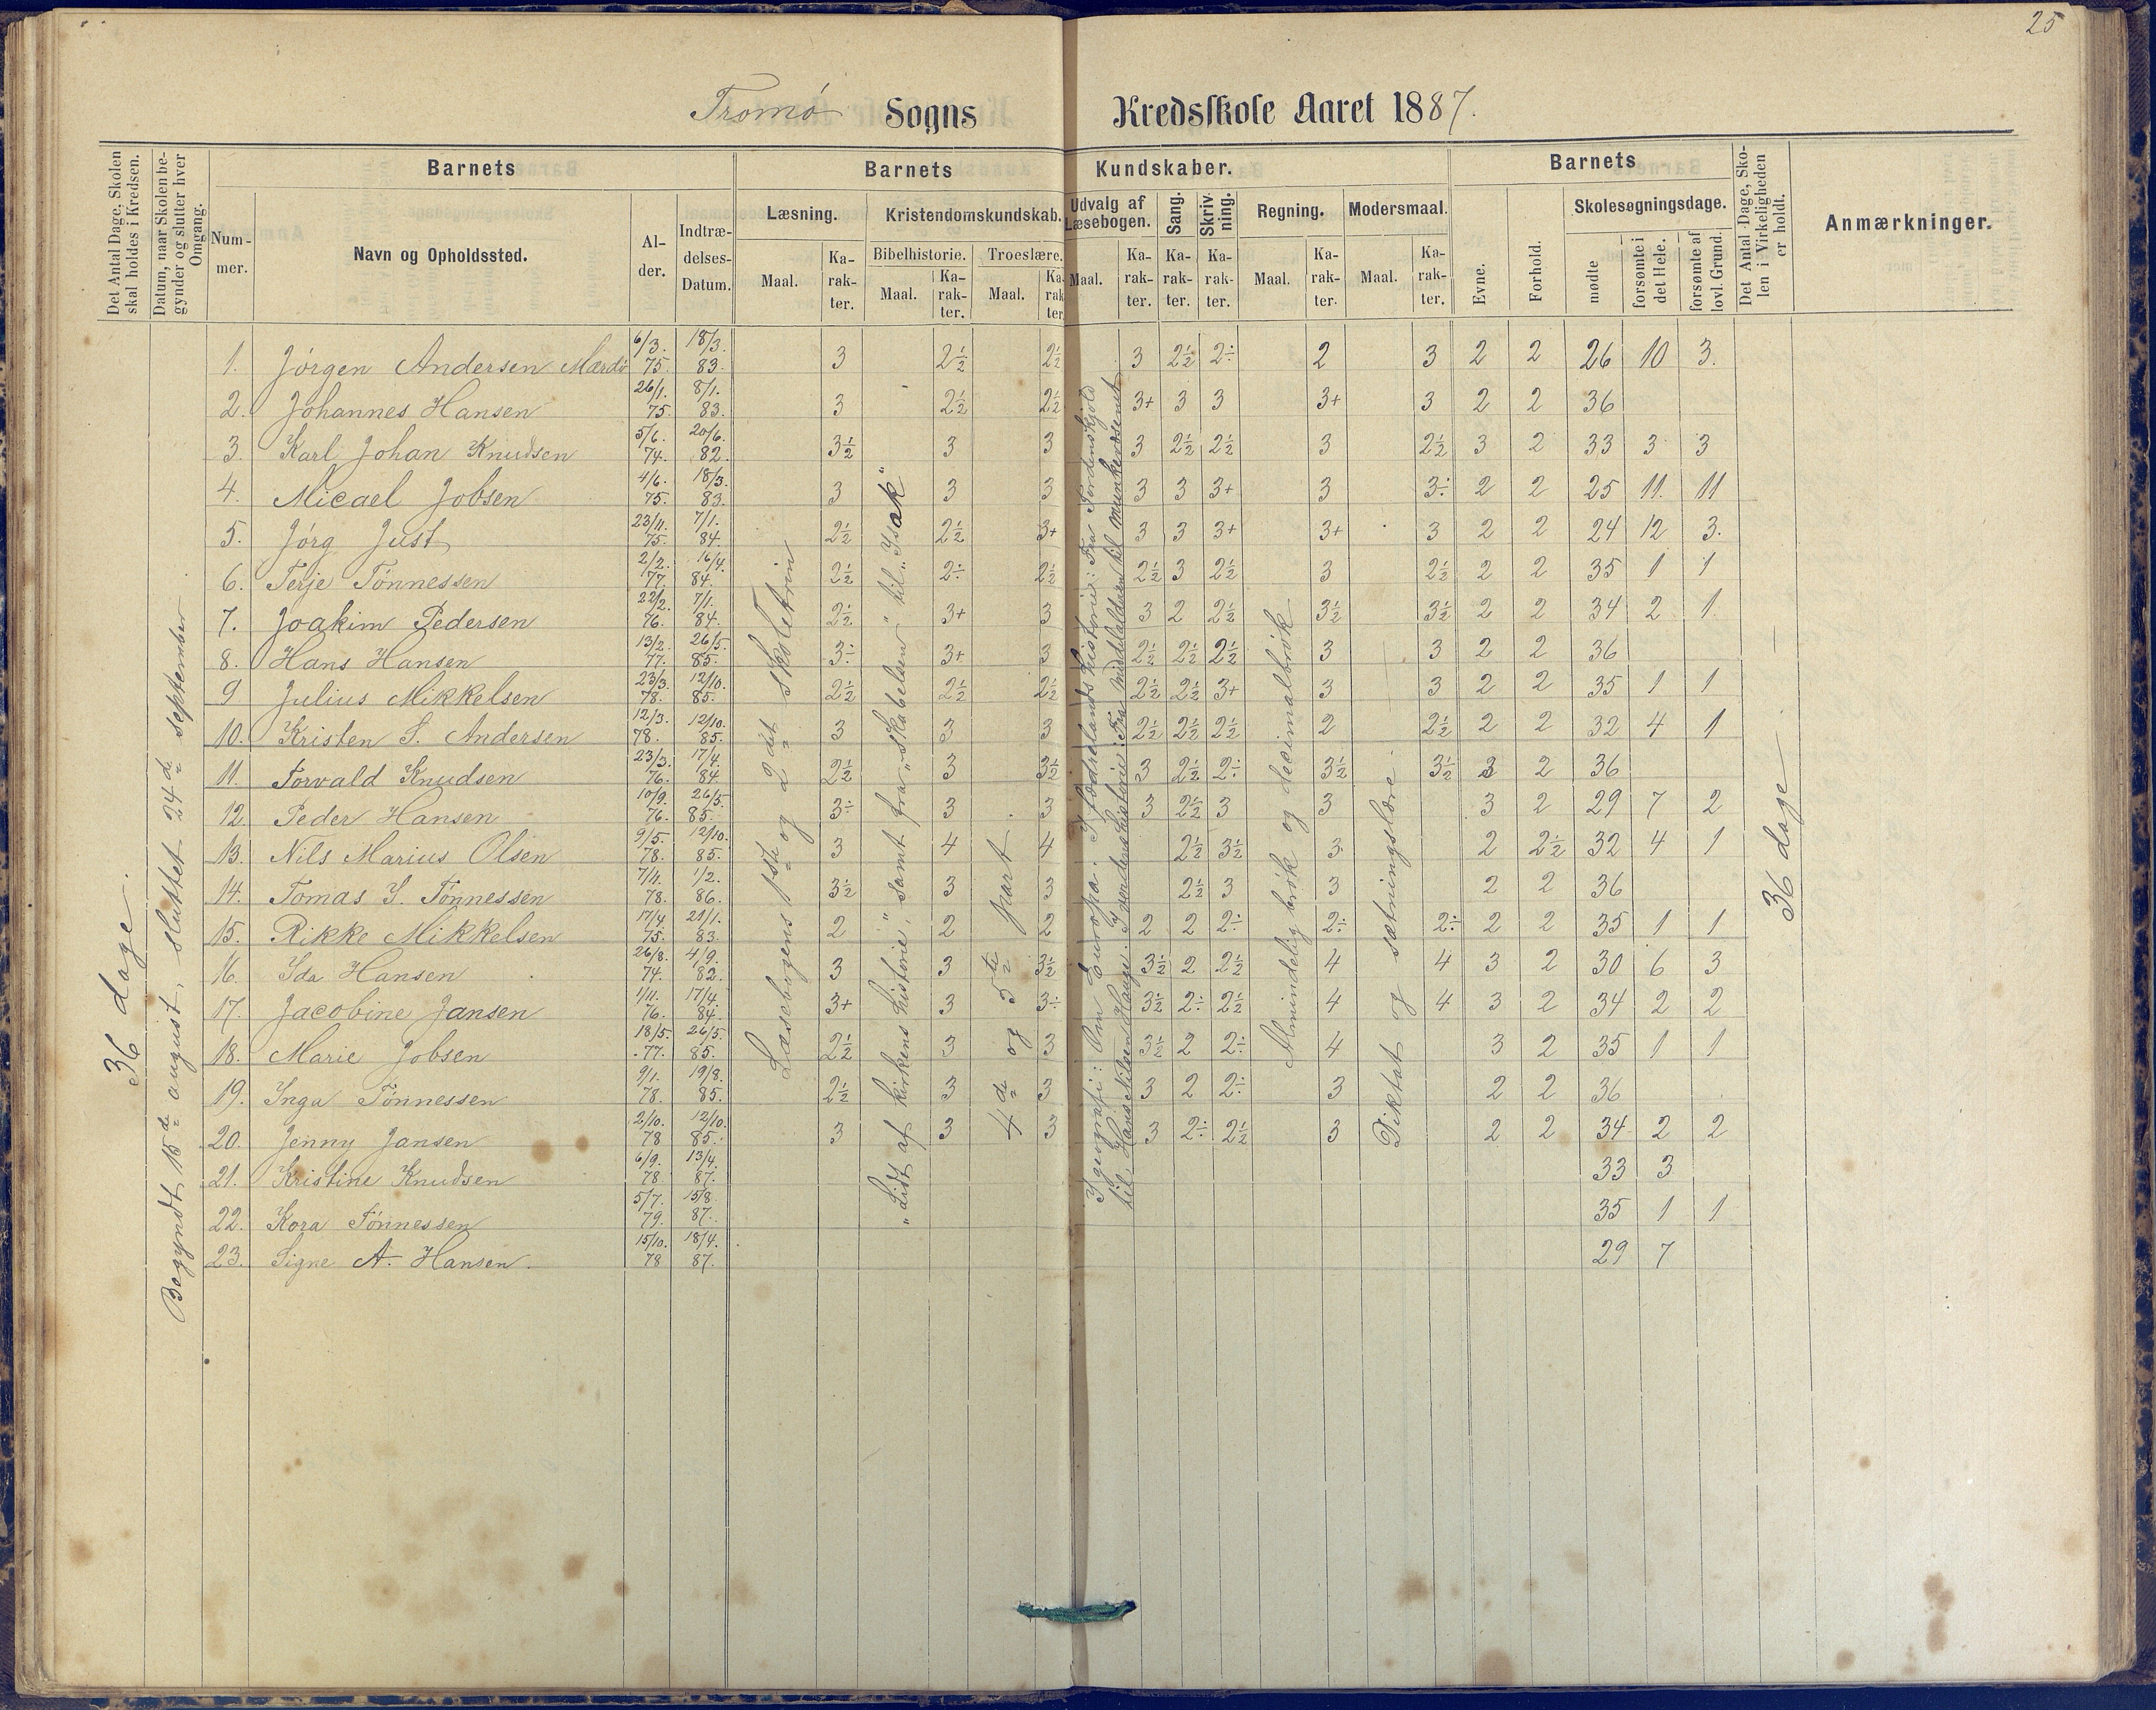 25
Tromø Sogns Kredsskole Aaret 1887.
Det Antal Dage, Skolen skal holdes i Kredsen.
Datum, naar Skolen begynder og slutter hver Omgang.
Barnets
Barnets Kundskaber.
Barnets
Det Antal Dage, Skolen i Virkeligheden er holdt.
Anmærkninger.
Nummer.
Navn og Opholdssted.
Alder.
Indtrædelses-Datum.
Læsning.
Kristendomskundskab.
Udvalg af Læsebogen.
Sang.
Skrivning.
Regning.
Modersmaal.
Evne.
Forhold.
Skolesøgningsdage.
Bibelhistorie.
Troeslære.
Maal. Karakter. Maal. Karakter. Maal. Karakter. Maal. Karakter. Karakter. Karakter. Maal. Karakter. Maal. Karakter.
mødte
forsømte i det Hele.
forsømte af lovl. Grund.
36 dage.
Begyndt 15de august, sluttet 24de september
Læsebogens 1ste og 2det skoletrin
"Lidt af kirkens historie", samt fra "Skabelsen" til "Isak"
4de og 5te part
I geografi: Om Europa. I fædrelandshistorie: Fra Tordenskjold
til Hans Nilsen Hauge. I verdenshistorie: Fra middelalderen til munkevæsenet
Almindelig brøk og decimalbrøk
Diktat og sætningslære
36 dage
1. Jørgen Andersen Mærdø 6/3. 75. 18/3. 83. 3 2½ 2½ 3 2½ 2÷ 2 3 2 2 26 10 3.
2. Johannes Hansen 26/1. 75. 8/1. 83. 3 2½ 2½ 3+ 3 3 3+ 3 2 2 36
3. Karl Johan Knudsen 5/6. 74. 20/6. 82. 3½ 3 3 3 2½ 2½ 3 2½ 3 2 33 3 3
4. Micael Jobsen 4/6. 75. 18/3. 83. 3 3 3 3 3 3+ 3 3÷ 2 2 25 11. 11
5. Jørg Just 23/11. 75. 7/1. 84. 2½ 2½ 3+ 3 3 3+ 3+ 3 2 2 24 12 3.
6. Terje Tønnessen 2/2. 77. 16/4. 84. 2½ 2÷ 2½ 2½ 3 2½ 3 2½ 2 2 35 1 1
7. Joakim Pedersen 22/2. 76. 7/1. 84. 2½ 3+ 3 3 2 2½ 3½ 3½ 2 2 34 2 1
8. Hans Hansen 13/2. 77. 26/5. 85. 3÷ 3+ 3 2½ 2½ 2½ 3 3 2 2 36
9 Julius Mikkelsen 23/3. 78. 12/10. 85. 2½ 2½ 2½ 2½ 2½ 3+ 3 3 2 2 35 1 1
10. Kristen S. Andersen 12/3. 78. 12/10. 85. 3 3 3 2½ 2½ 2½ 2 2½ 2 2 32 4 1
11. Torvald Knudsen 23/3. 76. 17/4. 84 2½ 3 3½ 3 2½ 2÷ 3½ 3½ 3 2 36
12. Peder Hansen 10/9. 76. 26/5. 85. 3÷ 3 3 3 2½ 3 3 3 2 29 7 2
13. Nils Marius Olsen 9/5. 78. 12/10. 85. 3 4 4 2½ 3½ 3 2 2½ 32 4 1
14. Tomas S. Tønnessen 7/4. 78. 1/2. 86. 3½ 3 3 2½ 3 3 2 2 36
15. Rikke Mikkelsen 17/4 75. 21/1. 83. 2 2 2 2 2 2÷ 2÷ 2÷ 2 2 35 1 1
16. Ida Hansen 26/8. 74. 4/9. 82. 3 3 3½ 3½ 2 2½ 4 4 3 2 30 6 3
17. Jacobine Jansen 1/11. 76. 17/4. 84. 3+ 3 3÷ 3½ 2÷ 2½ 4 4 3 2 34 2 2
18. Marie Jobsen 18/5. 77. 26/5. 85. 2½ 3 3 3½ 2 2÷ 4 3 2 35 1 1
19. Inga Tønnessen 9/1. 78. 19/8. 85. 2½ 3 3 3 2 2÷ 3 2 2 36
20. Jenny Jansen 2/10. 78 12/10. 85. 3 3 3 3 2÷ 2½ 3 2 2 34 2 2
21. Kristine Knudsen 6/9. 78 13/4. 87. 33 3
22. Kora Tønnessen 5/7. 79. 15/8. 87. 35 1 1
23. Signe A. Hansen 15/10. 78 18/4. 87. 29 7